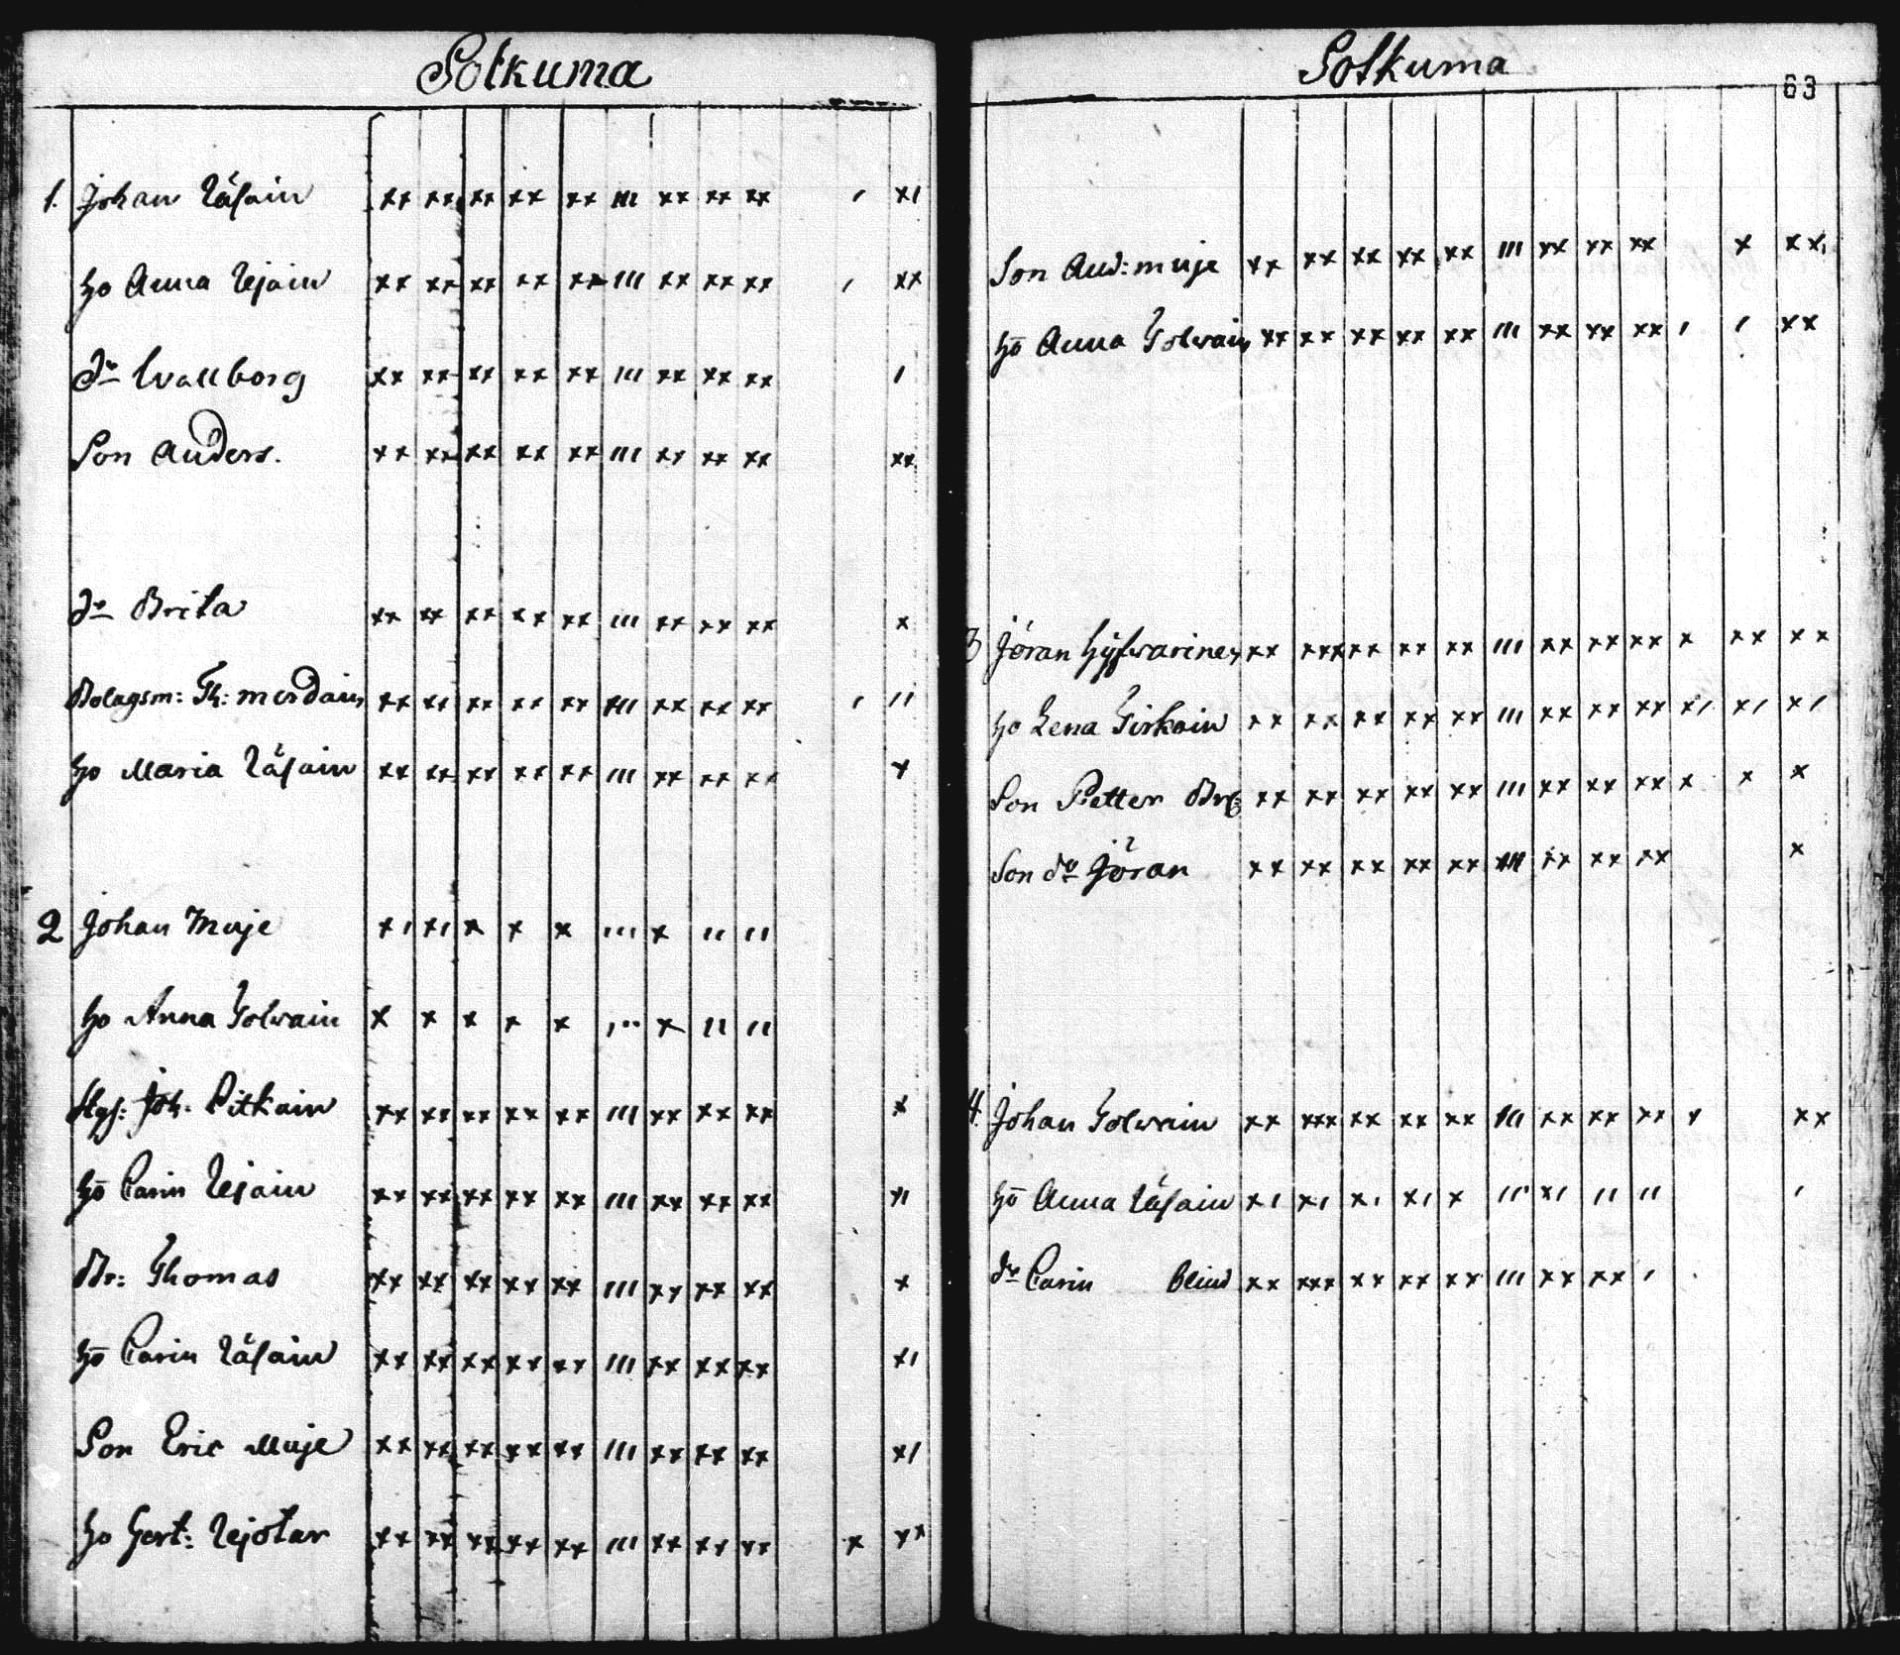 Sotkuma
1. Johan Räsäin xx xx xx xx xx III xx xx xx ı xı
ho Anna Rejain xx xx xx xx xx III xx xx xx ı xx
dr Wallborg xx xx xx xx xx III xx xx xx ı
Son Anders. xx xx xx xx xx III xx xx xx xx
dr Brita xx xx xx xx xx III xx xx xx x
Bolagsm: Th: mordain xx xx xx xx xx III xx xx xx ı ıı
ho Maria Räsain xx xx xx xx xx III xx xx xx x
2 Johan Muje xı xı x x x III x ıı ıı
ho Anna Tolvain x x x x x III x ıı ıı
Hgf: Joh. Pitkain xx xx xx xx xx III xx xx xx x
ho Carin Rejain xx xx xx xx xx III xx xx xx xı
Br: Thomas xx xx xx xx xx III xx xx xx x
ho Carin Räsain xx xx xx xx xx III xx xx xx xı
Son Eric Muje xx xx xx xx xx III xx xx xx xı
ho Gert: Rejotar xx xx xx xx xx III xx xx xx x xx
Sotkuma
63
Son And: muje xx xx xx xx xx III xx xx xx x xxı
ho Anna Tolvain xx xx xx xx xx III xx xx xx ı ı xx
3 Jöran Hyfvarinen xx xxx xx xx xx III xx xx xx x xx xx
ho Lena Tirkain xx xx xx xx xx III xx xx xx xı xı xı
Son Petter xx xx xx xx xx III xx xx xx x x x
Son do Jöran xx xx xx xx xx III xx xx xx x
4. Johan Tolvain xx xxx xx xx xx III xx xx xx x xx
ho Anna Räsain xı xı xı xı x III xı ıı ıı ı
dr Carin blind xx xxx xx xx xx III xx xx ı